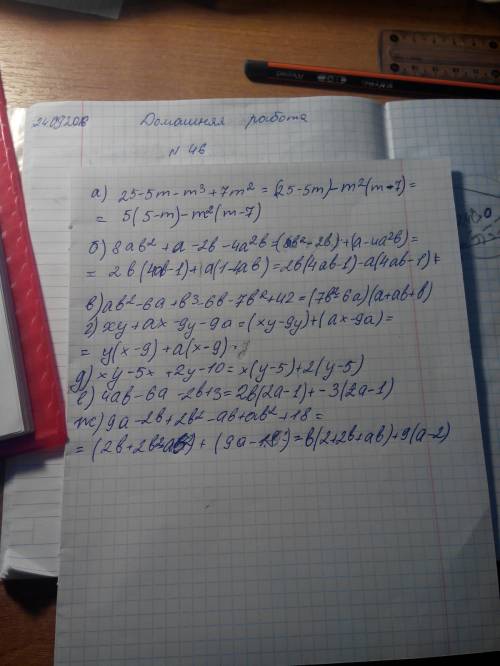 24.09.20
Домашняя работа
N 4б
а) 25-5m-m³+7m² = (25-5m)-m²(m-7)=
= 5(5-m)-m²(m-7)
б) 8ab²+a-2b-4a²b=(8ab²-2b)+(a-4a²b)=
= 2b(4ab-1)+a(1-4ab)=2b(4ab-1)-a(4ab-1)
в) ab²-6a+b³-6b-7b²+42=(7b²-6a)(a+ab+b)
г) xy+ax-9y-9a=(xy-9y)+(ax-9a)=
= y(x-9)+a(x-9)
д) xy-5x+2y-10=x(y-5)+2(y-5)
е) 4ab-6a-2b+3=2b(2a-1)+-3(2a-1)
ж) 9a-2b+2b²-ab+ab²+18=
= (2b+2b² ) + (9a-18)=b(2+2b+ab)+9(a-2)